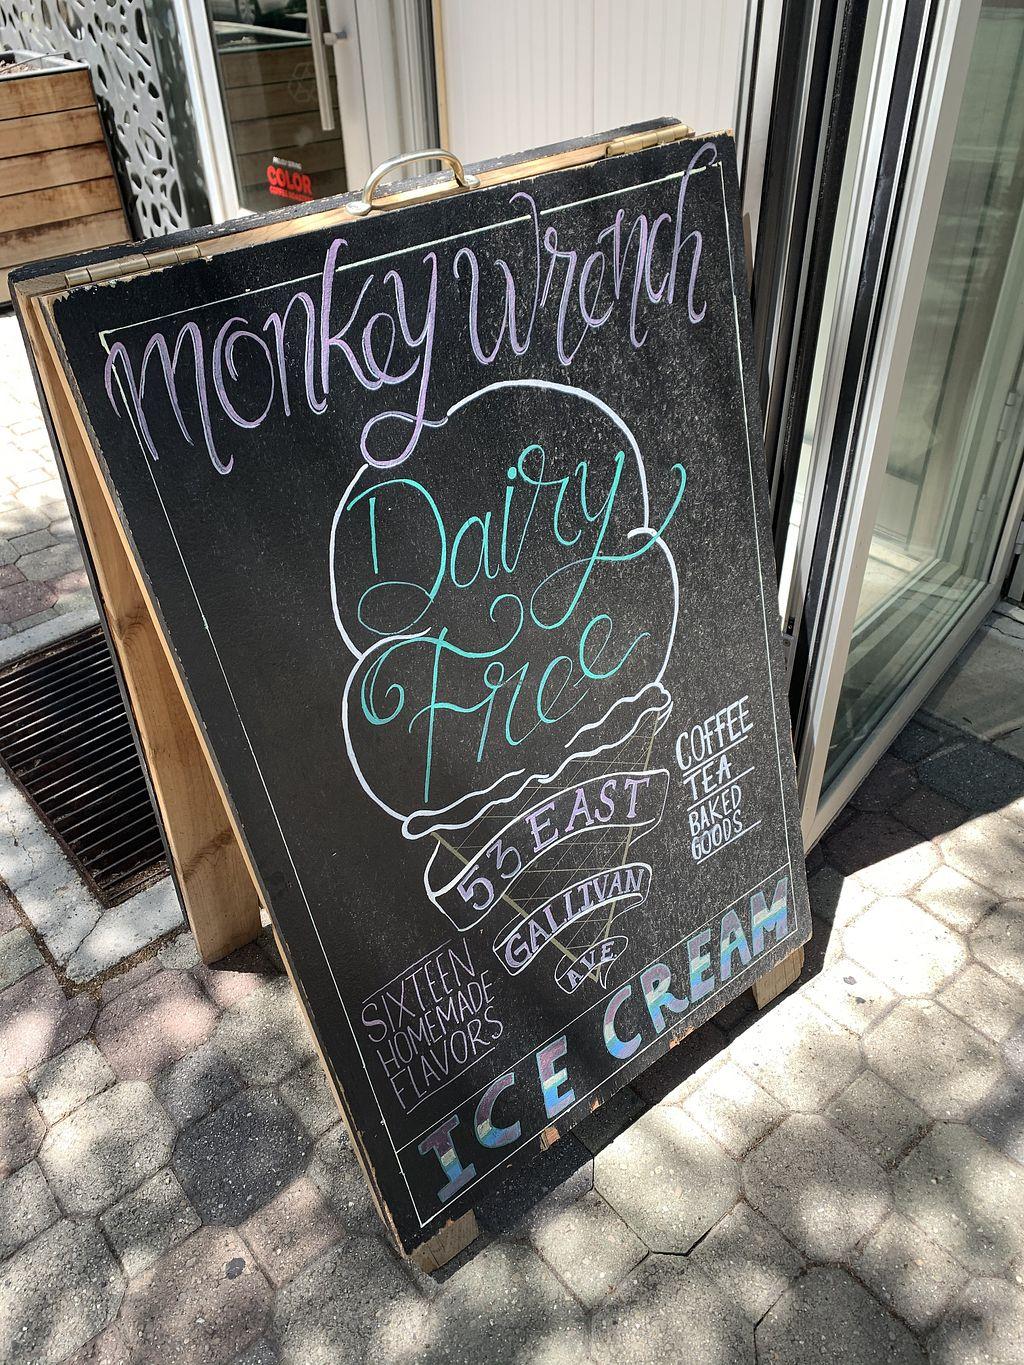 COLOR
Monkey Wrench
Dairy
Free
53 EAST
GALLIVAN
AVE
COFFEE
TEA
BAKED
GOODS
SIXTEEN
HOMEMADE
FLAVORS
ICE CREAM